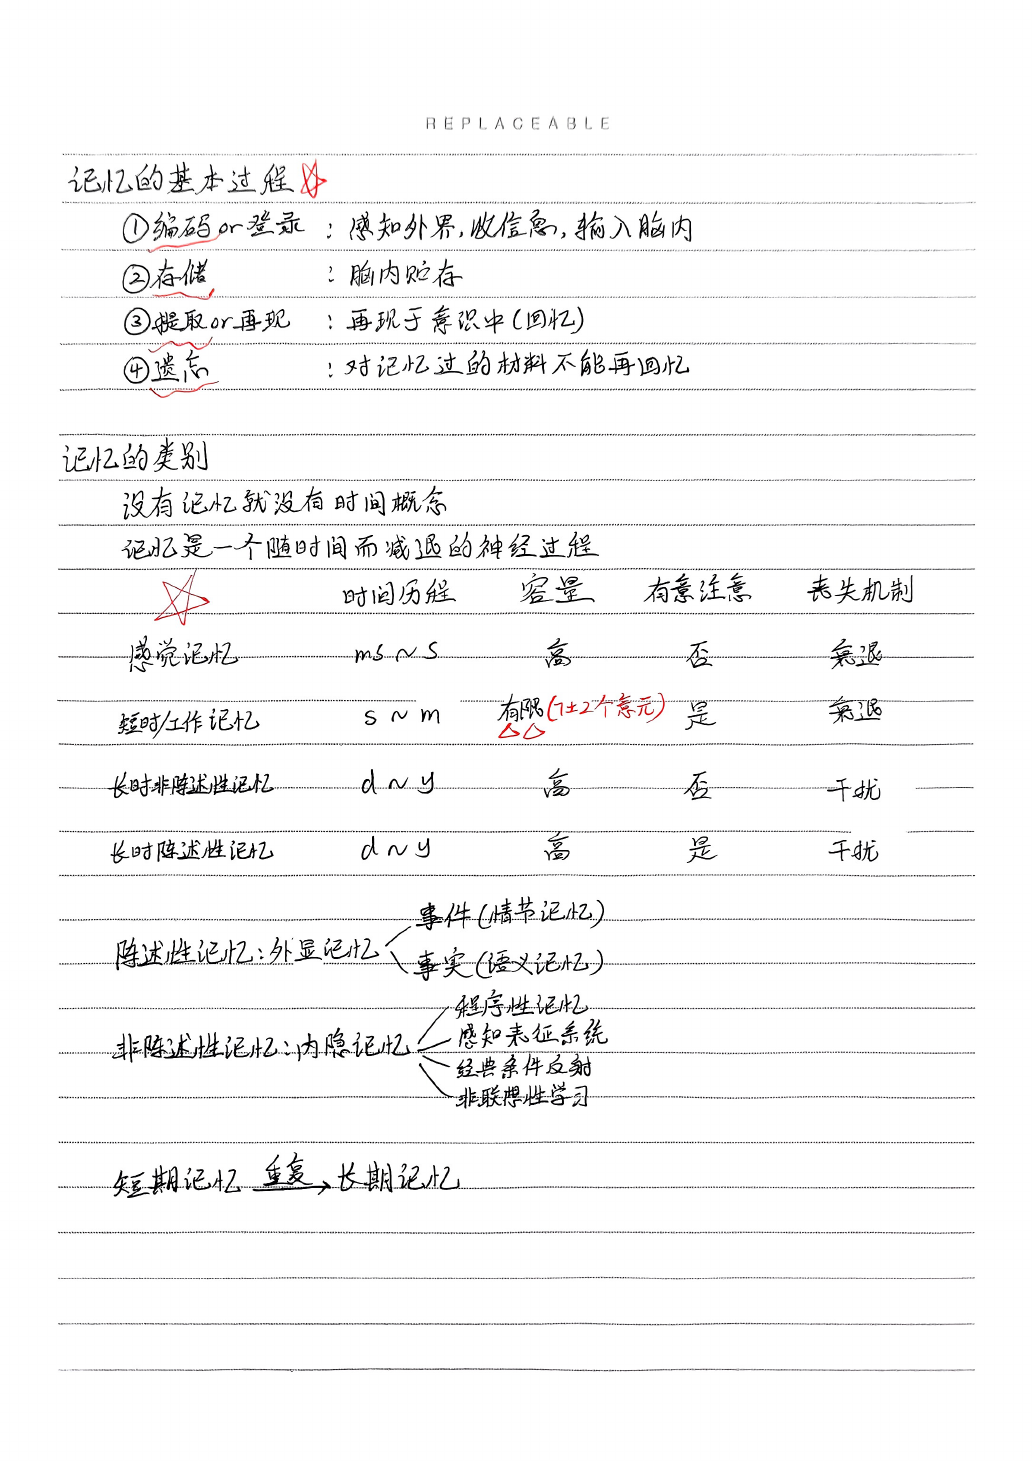 REPLACEABLE
记忆的基本过程
①编码or登录：感知外界,收信息,输入脑内
②存储：脑内贮存
③提取or再现：再现于意识中(回忆)
④遗忘：对记忆过的材料不能再回忆
记忆的类别
没有记忆就没有时间概念
记忆是一个随时间而减退的神经过程
时间历程 容量 有意注意 丧失机制
感觉记忆 ms~s 高 否 衰退
短时/工作记忆 s~m 有限(7±2个意元) 是 衰退
长时非陈述性记忆 d~y 高 否 干扰
长时陈述性记忆 d~y 高 是 干扰
事件(情节记忆)
陈述性记忆：外显记忆
事实(语义记忆)
程序性记忆
感知表征系统
非陈述性记忆：内隐记忆
经典条件反射
非联想性学习
短期记忆 重复→ 长期记忆